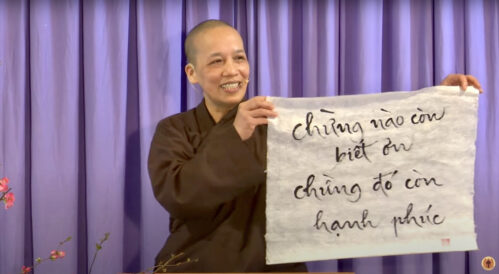 chừng nào còn
biết ơn
chừng đó còn
hạnh phúc